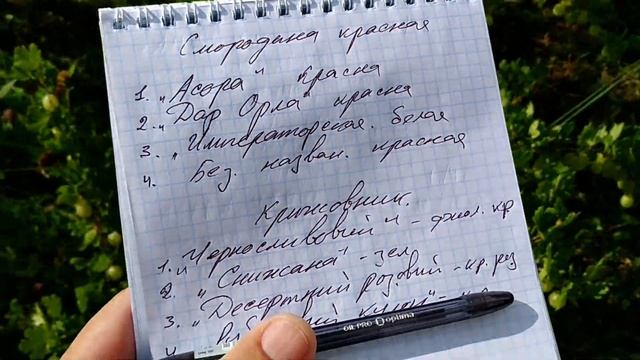 Смородина красная
1. „Асора" красна
2. „Дар Орла" красна
3. „Императорская. белая
4. Без. назван. красная
Крыжовник.
1. „Черносливовый" -
2. „Снижана" - зел
3. „Десертний розовий - кр. роз
4
OIL PRO Optima